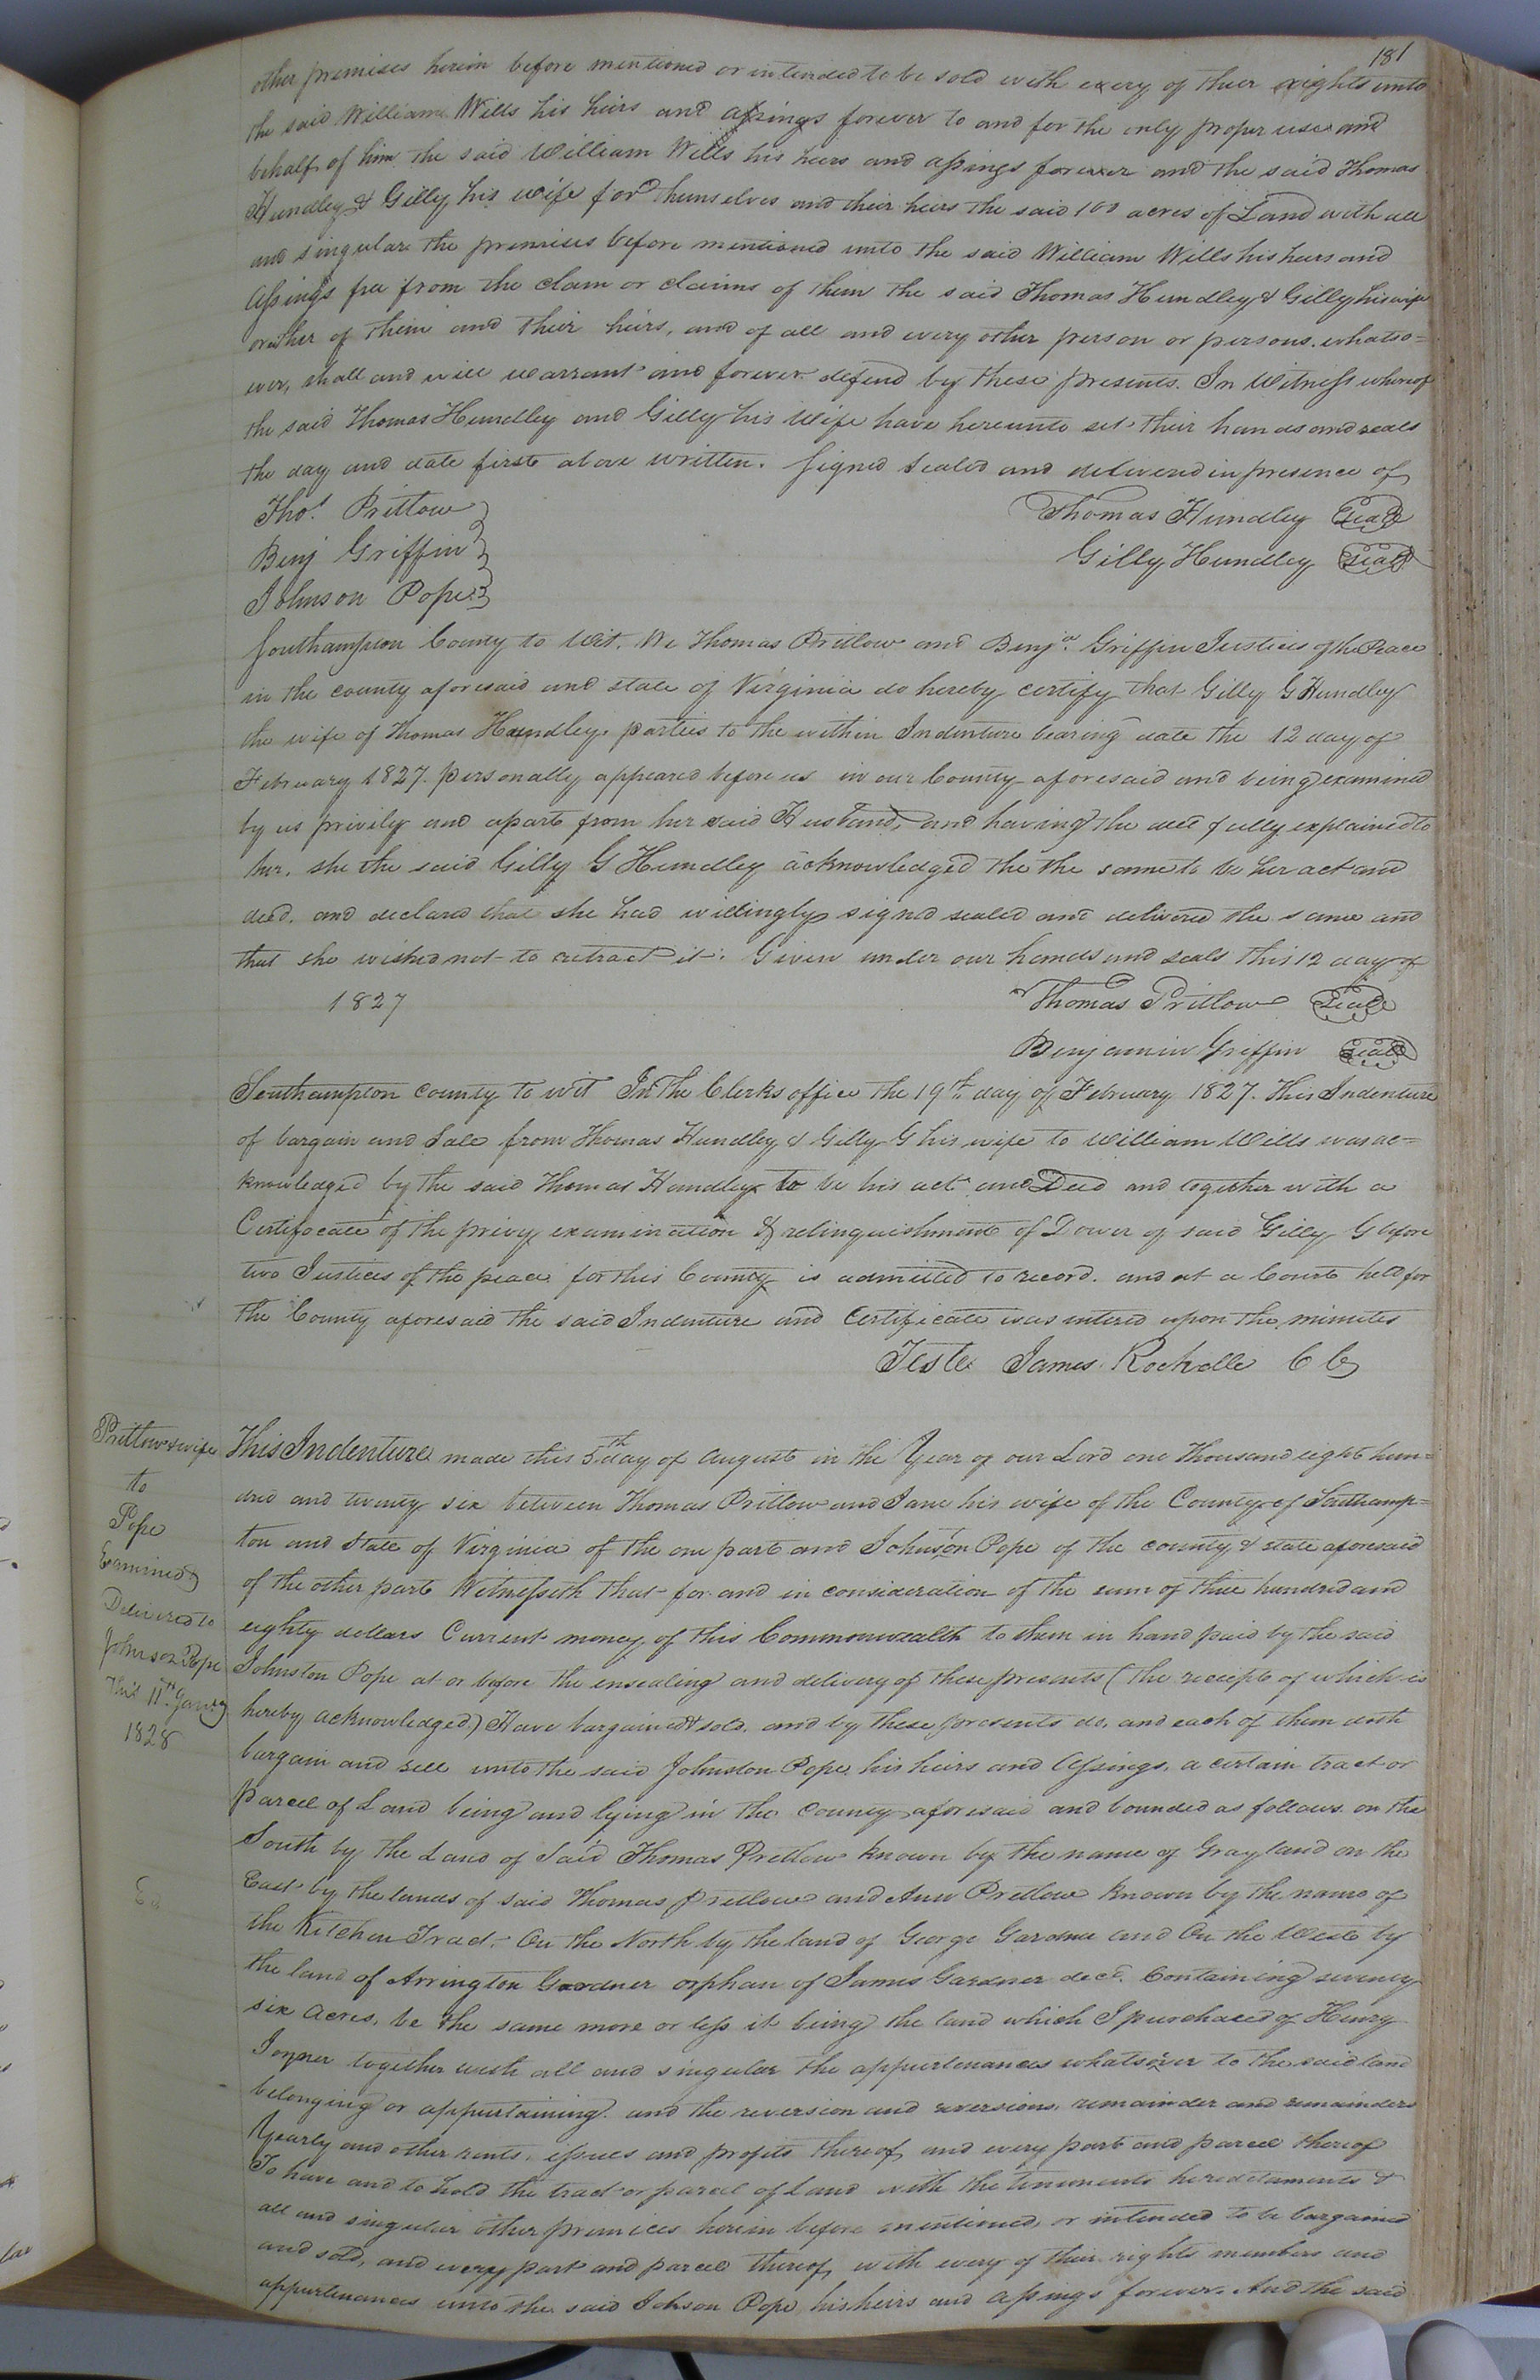 181
other premises herein before mentioned or intended to be sold with every of their rights unto
the said William Wills his heirs and assings forever to and for the only proper use and
behalf of him the said William Wills his heirs and assings forever and the said Thomas
Hundley & Gilly his wife for themselves and their heirs the said 100 acres of Land with all
and singular the premises before mentioned unto the said William Wills his heirs and
Assings free from the clam or claims of them the said Thomas Hundley & Gilly his wife
or ither of them and their heirs, and of all and every other person or persons whatso=
ever, shall and will warrant and forever defend by these presents. In Witness whereof
the said Thomas Hundley and Gilly his Wife have hereunto set their hands and seals
the day and date first above written. Signed Sealed and delivered in presence of
Thos. Pritlow Thomas Hundley Seal
Benj Griffin Gilly Hundley Seal
Johnson Pope
Southampton County to Wit. We Thomas Pritlow and Benja. Griffin Justices of the Peace
in the county aforesaid and state of Virginia do hereby certify that Gilly G Hundley
the wife of Thomas Hundley parties to the within Indenture bearing date the 12 day of
February 1827. personally appeared before us in our County aforesaid and being examined
by us privily and apart from her said Husband, and having the deed fully explained to
her. she the said Gilly G Hundley acknowledged the the same to be her act and
deed. and declared that she had willingly signed sealed and delivered the same and
that she wished not to retract it. Given under our hands and seals this 12 day of
1827 Thomas Pritlow Seal
Benjamin Griffin Seal
Southampton county to wit In the Clerks office the 19th day of February 1827. This Indenture
of bargain and Sale from Thomas Hundley & Gilly G his wife to William Wills was ac=
knowledged by the said Thomas Hundley to be his act and Deed and together with a
Certifocate of the privy examination & relinquishment of Dower of said Gilly G before
two Justices of the peace for this County is admitted to record. and at a Court held for
the County aforesaid the said Indenture and Certificate was entered upon the minutes
Teste James Rochelle CC
Pritlow & wife
to
Pope
Examined &
Delivered to
Johnson Pope
this 11th Jany
1828
This Indenture made this 5th day of August in the Year of our Lord one Thousand eight hun=
dred and twenty six between Thomas Pritlow and Jane his wife of the County of Southamp=
ton and State of Virginia of the one part and Johnson Pope of the county & state aforesaid
of the other part Witnesseth that for and in consideration of the sum of three hundred and
eighty dollars Current money of this Commonwealth to them in hand paid by the said
Johnston Pope at or before the ensealing and delivery of these presents (the receipt of which is
hereby acknowledged.) Have bargained & sold. and by these presents do, and each of them doth
bargain and sell unto the said Johnston Pope his heirs and Assings, a certain tract or
parcel of Land being and lying in the County aforesaid and bounded as follows on the
South by the Land of Said Thomas Pretlow known by the name of Grayland on the
East by the lands of said Thomas Pretlow and Ann Pretlow known by the name of
the Kitchen Tract. On the North by the land of George Gardner and On the West by
the land of Arrington Gardner orphan of James Gardner decd. Containing seventy
six acres, be the same more or less it being the land which I purchased of Henry
Joyner together with all and singular the appurtenances whatsoever to the said land
belonging or appurtaining. and the reversion and reversions, remainder and remainders
Yearly and other rents, issues and profits thereof, and every part and parcel thereof
To have and to hold the tract or parcel of Land with the tenements hereditaments &
all and singular other premices herein before mentioned, or intended to be bargained
and sold, and every part and parcel thereof, with every of their rights members and
appurtenances unto the said Johson Pope his heirs and Assings forever. And the said